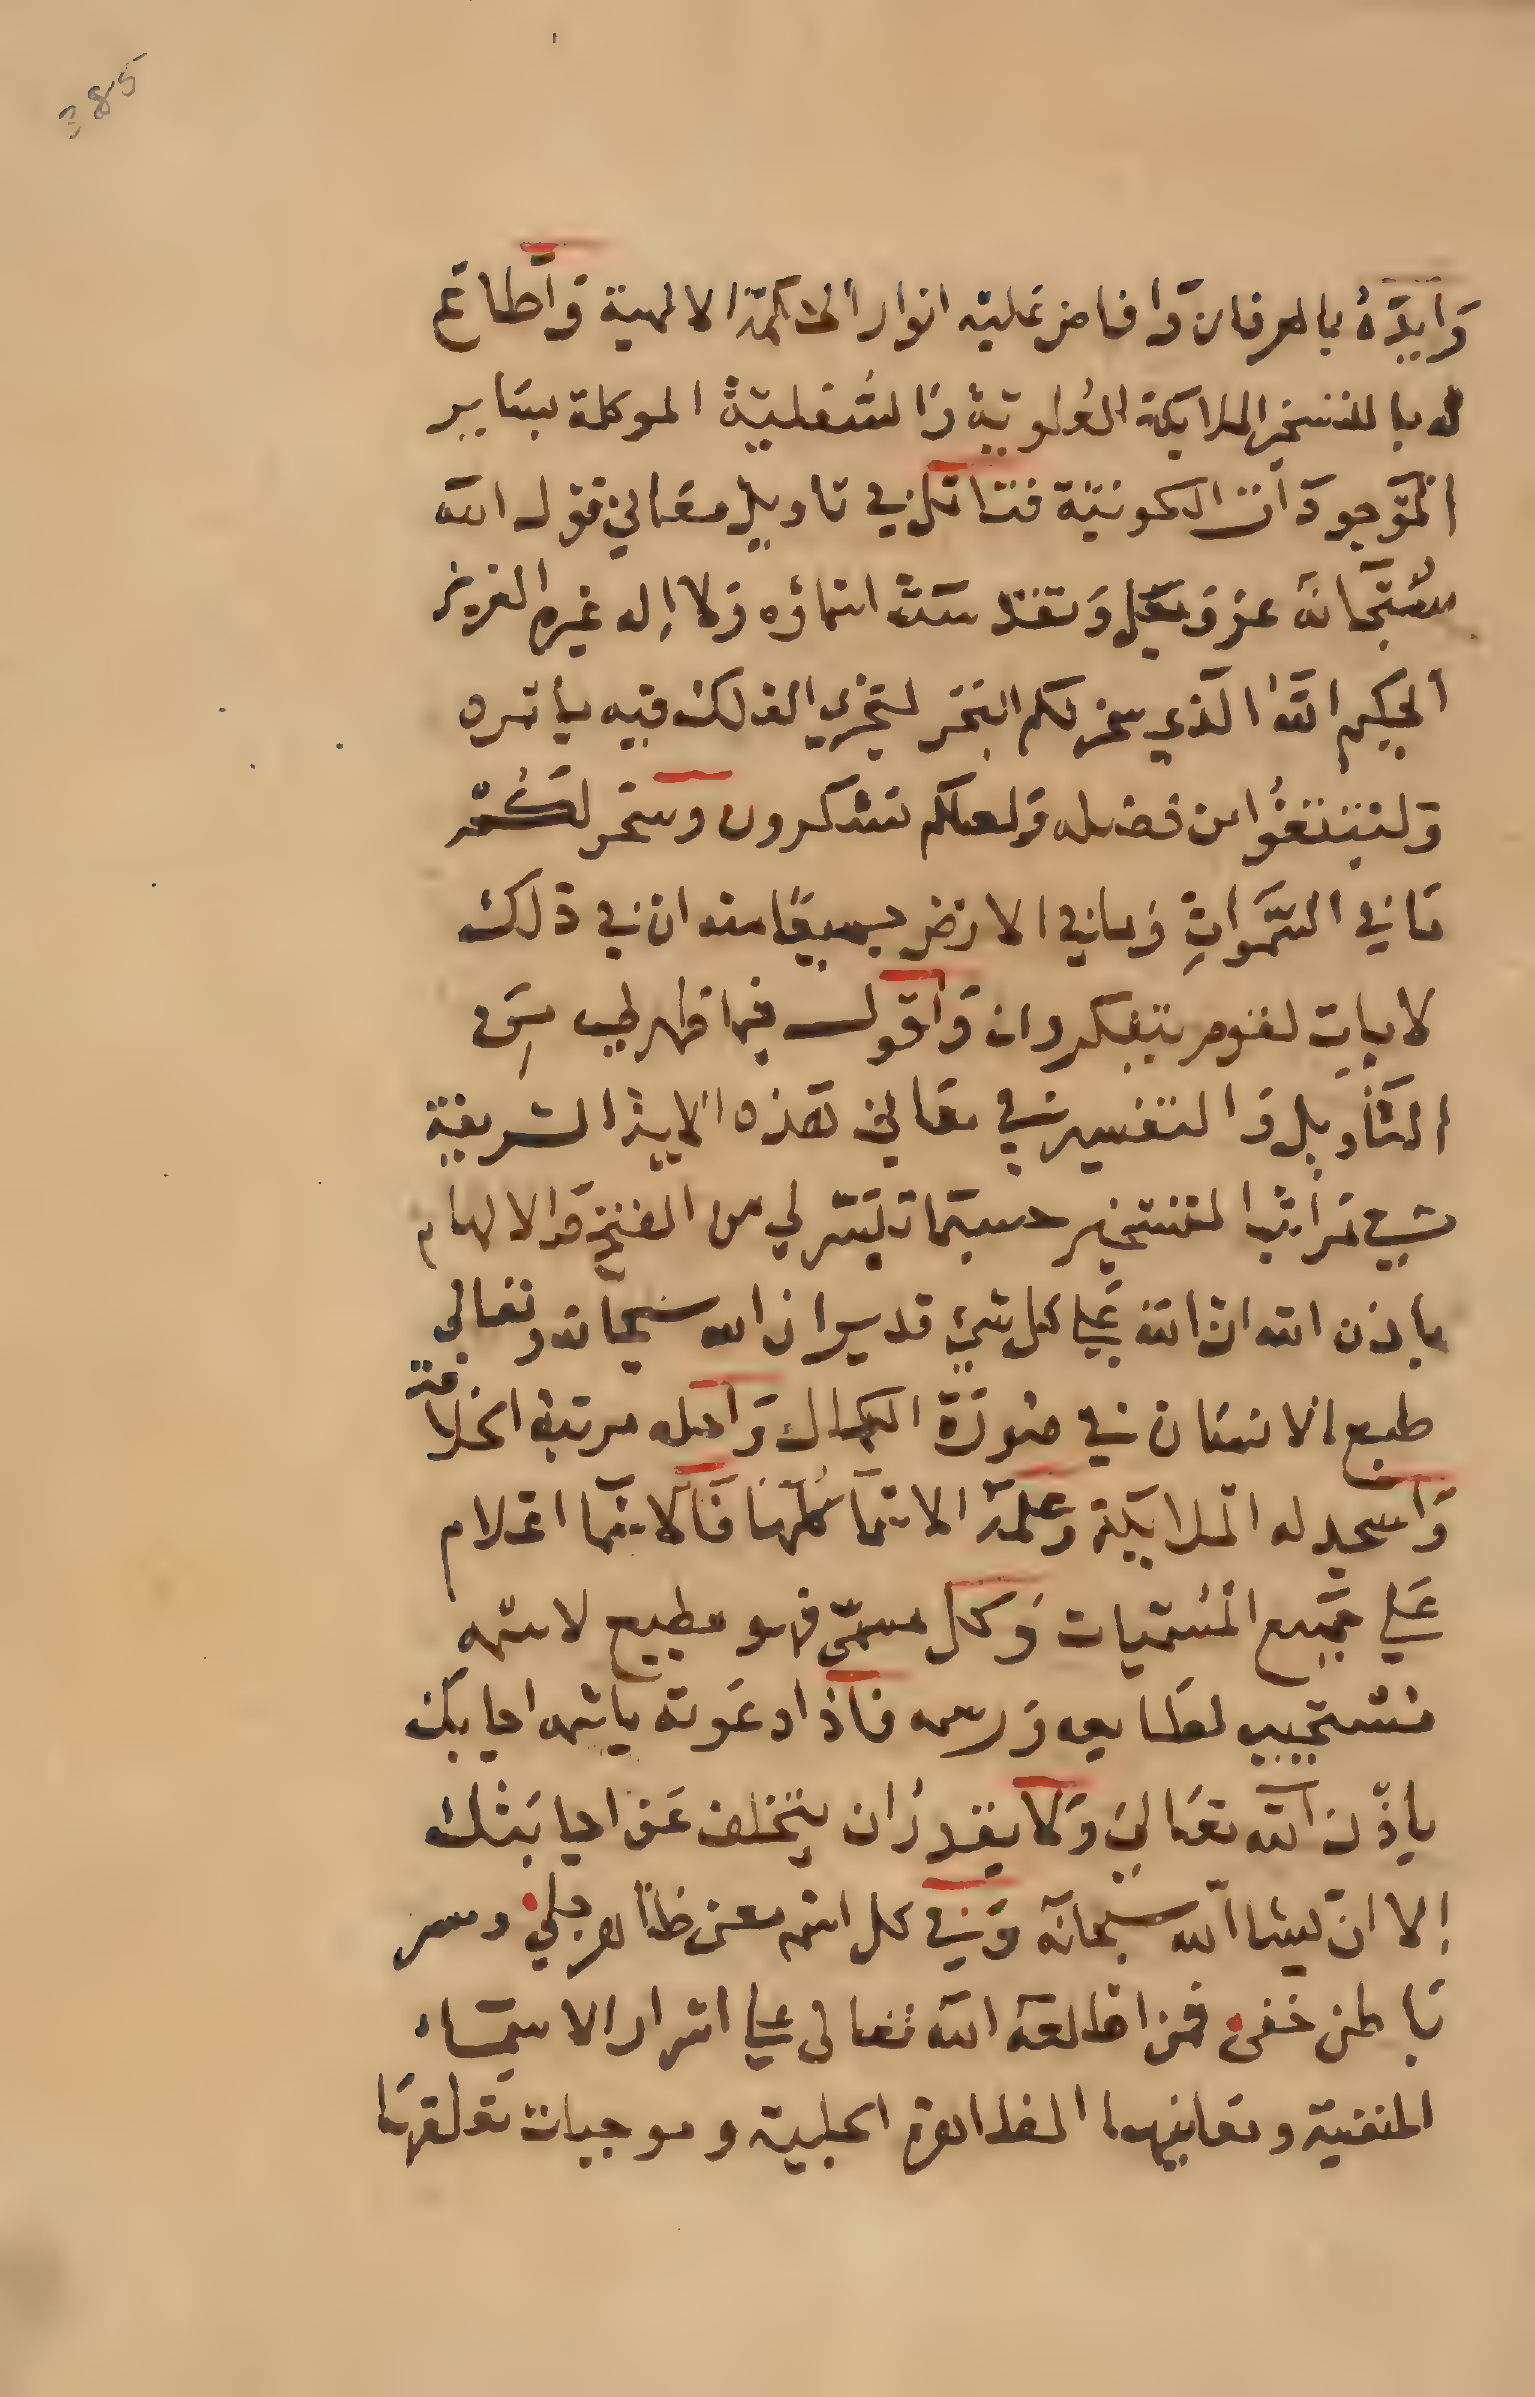 385
وَايَدَّهُ بالعرفان وَافاض عَليْه انوار الحكمَة الالهية وَاطاعَ
له بالتسخير الملايكة العُلويَة وَالسُّفليّة الموكلة بسَاير
المَوجودَات الكونيّة فتاَمّل في تاويل معَاني قول الله
سُبْحَانَه عز وَجَل وَتقدسَت اسَماؤه وَلا اِله غيره العَزيز
الحكيم اللّه الّذي سخر لكم البَحر لتجرِي الفلك فيه بأمره
وَلتبتغُوا من فضله وَلعلكم تشكرون وسَخر لكُمْ
مَا في السَّمَواتِ وَمافي الارض جميعًا منه ان في ذلك
لايات لقوم يتفكرون وَاقول فيما ظهر لي مِنَ
التَأويل وَالتفسير في معَاني هَذه الايَة الشريفة
في مَراتب التسخير حسبمَا تيَسّر لي من الفتح وَالالهام
باذن الله انّ الله عَلي كل شيء قدير ان الله سبحانه وتعالى
طبع الانسَان في صُورَة الكمال وَاحله مرتبة الخلافة
وَاسجد له الملايكة وَعلمَهُ الاسَمَا كلّهَا فَالاسَمَا اعَلام
عَلي جَميع المُسَمّيات وَكل مسمّى فهو مطيع لاسمه
مُسْتجيب لطَابعه وَرسمه فاذا دعَوته باسْمه اجابك
باذْن اللّه تعَالىَ وَلا يقدرُ ان يتخلف عَن اجابَتك
إلا انْ يشا اللّه سبحانَه وَفي كل اسْم معنى ظاهر جليّ وسر
بَاطن خفى فمن اطلعَهُ اللّه تعالى علي اسْرار الاسَمَاء
الخفية ومعَانيها الظاهرة الجلية وموجبات تعَلقهَا